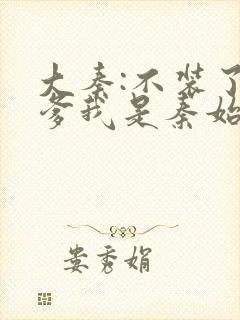 大秦:不装了
爹我是秦始
娄秀娟